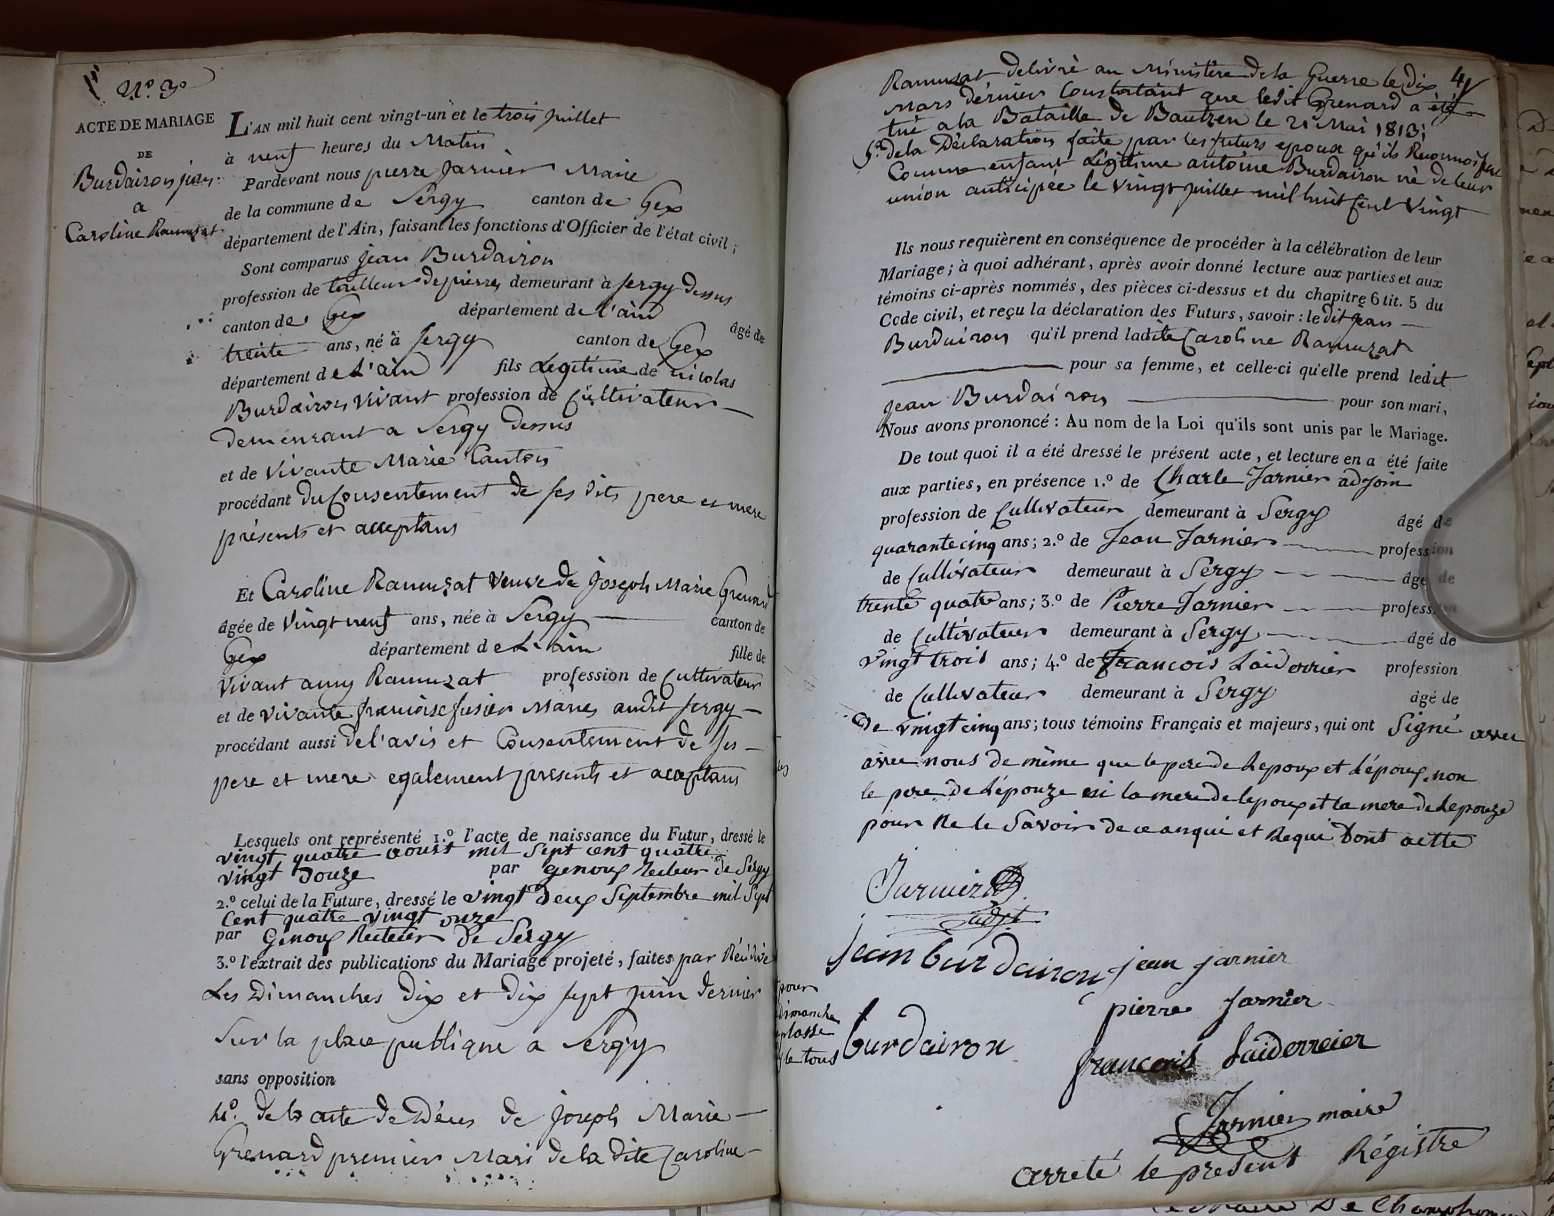 N.º 3º
ACTE DE MARIAGE
DE
Burdairon jean
a
Caroline Ramuzat
L'AN mil huit cent vingt-un et le trois juillet
à neuf heures du Matin
Pardevant nous pierre Jarnier Marie
de la commune de Sergy canton de Gex
département de l'Ain, faisant les fonctions d'Officier de l'état civil ;
Sont comparus jean Burdairon
profession de tailleur de pierres demeurant à Sergy dessus
canton de Gex département de l'ain âgé de
trente ans, né à Sergy canton de Gex
département de L'ain fils Légitime de nicolas
Burdairon vivant profession de Cultivateur
demeurant a Sergy dessus
et de vivante Marie Cantois
procédant du Consentement de ses dits pere et mere
présents et acceptans
Et Caroline Ramuzat veuve de Joseph Marie Grenard
âgée de vingt neuf ans, née à Sergy canton de
Gex département de L'ain fille de
vivant amy Ramuzat profession de Cultivateur
et de vivante françoise fusier Mariés audit Sergy
procédant aussi de l'avis et Consentement de ses
pere et mere egalement presents et acceptans
Lesquels ont représenté 1.º l'acte de naissance du Futur, dressé le
vingt quatre aoust mil sept cent quatre
vingt douze par Genoux Recteur de Sergy
2.º celui de la Future, dressé le vingt deux Septembre mil Sept
Cent quatre vingt onze
par Genoux Recteur de Sergy
3.º l'extrait des publications du Mariage projeté, faites par
Les Dimanches dix et dix sept juin dernier
Sur la place publique a Sergy
sans opposition
4.º de l'acte de Décès de Joseph Marie
Grenard premier Mari de la dite Caroline
4
Ramuzat delivré au Ministère de la Guerre le dix
Mars dernier Constatant que ledit Grenard a été
tué a la Bataille de Bautzen le 21 Mai 1813;
5.º de la Déclaration faite par les futurs epoux qu'ils Reconnoissent
Comme enfant Légitime antoine Burdairon né de leur
union anticipée le vingt juillet mil huit cent vingt
Ils nous requièrent en conséquence de procéder à la célébration de leur
Mariage ; à quoi adhérant, après avoir donné lecture aux parties et aux
témoins ci-après nommés, des pièces ci-dessus et du chapitre 6 tit. 5 du
Code civil, et reçu la déclaration des Futurs, savoir : le dit jean
Burdairon qu'il prend ladite Caroline Ramuzat
pour sa femme, et celle-ci qu'elle prend ledit
jean Burdairon pour son mari,
Nous avons prononcé : Au nom de la Loi qu'ils sont unis par le Mariage.
De tout quoi il a été dressé le présent acte, et lecture en a été faite
aux parties, en présence 1.º de Charle Jarnier adjoin
profession de Cultivateur demeurant à Sergy âgé de
quarante cinq ans ; 2.º de Jean Jarnier profession
de Cultivateur demeuraut à Sergy âgé de
trente quatre ans ; 3.º de Pierre Jarnier profession
de Cultivateur demeurant à Sergy âgé de
vingt trois ans ; 4.º de francois Laiderrier profession
de Cultivateur demeurant à Sergy âgé de
De vingt cinq ans ; tous témoins Français et majeurs, qui ont Signé avec
avec nous de même que le pere de Lepoux et L'époux, non
le pere de L'épouze ni la mere de lepoux et la mere de Lepouze
pour ne le Savoir de ce anqui et Requi Dont acte
Jarnier
adjt
jean burdairon jean jarnier
pierre Jarnier
pour
dimanche
plasse
le tous
burdairon
francois Laiderreier
Jarnier maire
arreté le present Régistre